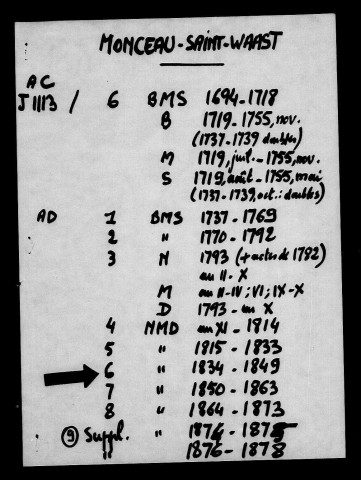 MONCEAU-SAINT-WAAST
AC
J1113 / 6 BMS 1694-1718
B 1719-1755, nov.
(1737-1739 doubles)
M 1719, juil. - 1755, nov.
S 1719, août - 1755, mai
(1737-1739, oct.: doubles)
AD 1 BMS 1737-1769
2 " 1770-1792
3 N 1793 (+ actes de 1792)
an II - X
M an II-IV; VI; IX-X
D 1793 - an X
4 NMD an XI - 1814
5 " 1815 - 1833
6 " 1834 - 1849
7 " 1850 - 1863
8 " 1864 - 1873
9 Suppl. " 1874 - 1875
" 1876 - 1878